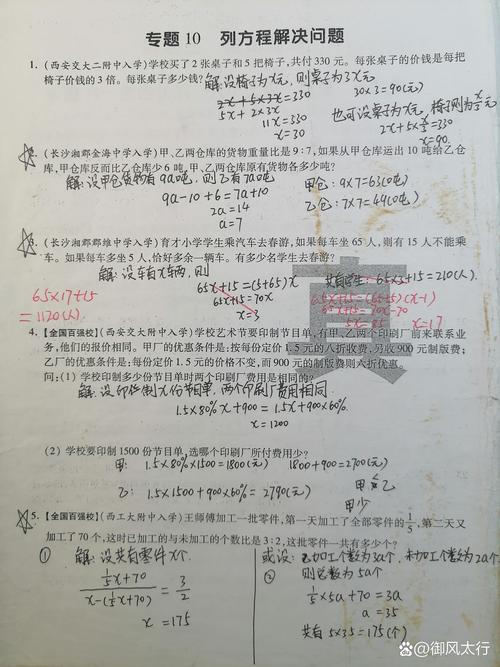 专题 10 列方程解决问题
1. (西安交大二附中入学)学校买了 2 张桌子和 5 把椅子,共付 330 元。每张桌子的价钱是每把
椅子价钱的 3 倍。每张桌子多少钱? 解:没椅子为x元,则桌子为3x元
2x+5×3x=330 30×3=90(元)
5x+2×3x
11x=330 也可设桌子为x元,椅子则为x/3元
x=30 2x+5×x/3=330
x=90
2. (长沙湘郡金海中学入学)甲、乙两仓库的货物重量比是 9:7,如果从甲仓库运出 10 吨给乙仓
库,甲仓库反而比乙仓库少 6 吨,甲、乙两仓库原有货物各多少吨?
解:设甲仓货物有9a吨,则乙有7a吨
9a-10+6=7a+10 甲仓:9×7=63(吨)
2a=14 乙仓:7×7=49(吨)
a=7
3. (长沙湘郡郡维中学入学)育才小学学生乘汽车去春游,如果每车坐 65 人,则有 15 人不能乘
车。如果每车多坐 5 人,恰好多余一辆车。有多少名学生去春游?
解:设车有x辆,则
65x+15=(5+65)x 共有学生:65×3+15=210(人)
65×17+15 65x+15=70x 65x+15=(65+5)(x-1)
=1120(人) x=3 65x+15=70x-70
5x=85 x=17
4. 【全国百强校】(西安交大附中入学)学校艺术节要印制节目单,有甲、乙两个印刷厂前来联系业
务,他们的报价相同。甲厂的优惠条件是:按每份定价 1.5 元的八折收费,另收 900 元制版费;
乙厂的优惠条件是:每份定价 1.5 元的价格不变,而 900 元的制版费则六折优惠。
问:(1) 学校印制多少份节目单时两个印刷厂费用是相同的?
解:设印制x份节目单,两个印刷厂费用相同.
1.5×80%x+900=1.5x+900×60%
x=1200
(2) 学校要印制 1500 份节目单,选哪个印刷厂所付费用少?
甲:1.5×80%×1500=1800(元) 1800+900=2700(元)
乙:1.5×1500+900×60%=2790(元) 甲 乙
甲少
5. 【全国百强校】(西工大附中入学)王师傅加工一批零件,第一天加工了全部零件的 1/5,第二天又
加工了 70 个,这时已加工的与未加工的个数比是 3:2,这批零件一共有多少个?
① 解:设共有零件x个. 或设:已加工个数为3a个,未加工个数为2a个
② 则总数为5a个
(1/5x+70)/(x-(1/5x+70))=3/2 1/5×5a+70=3a
a=35
x=175 共有5×35=175(个)
真
@御风太行